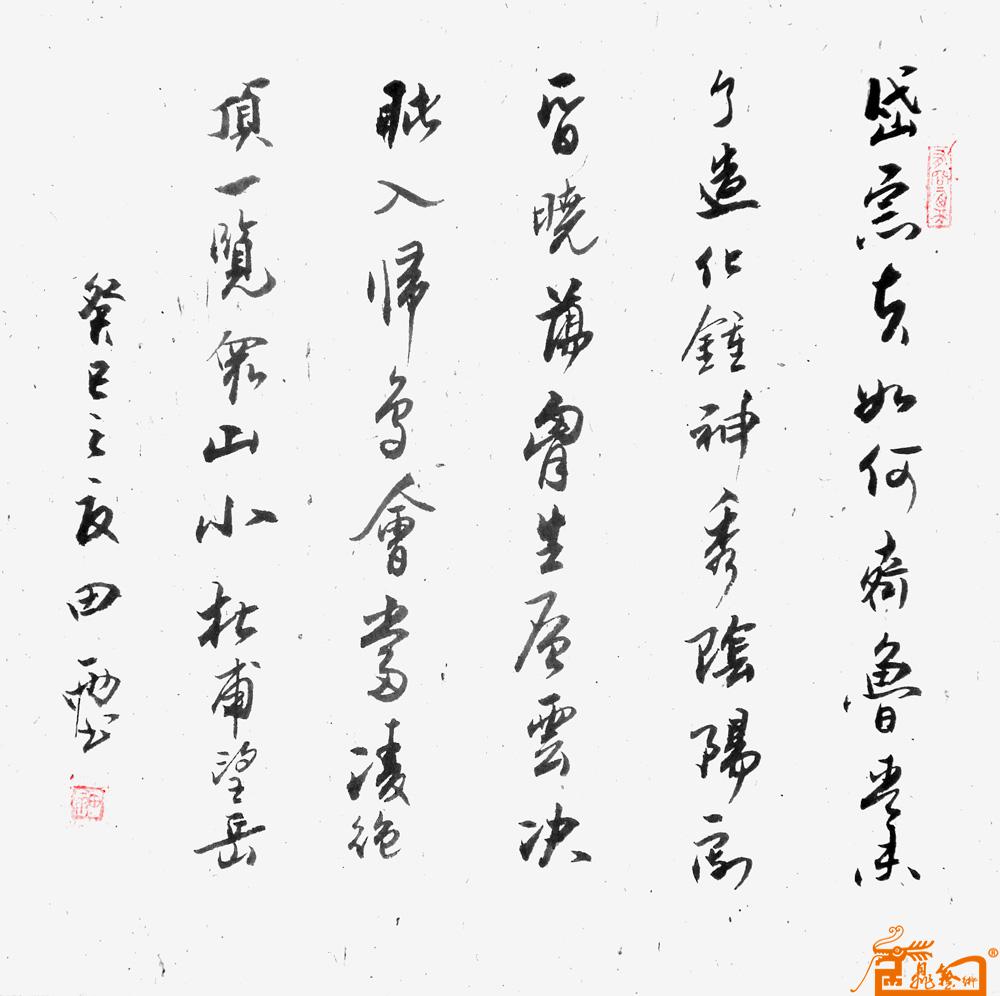 岱宗夫如何齊魯青未
了造化鍾神秀陰陽割
昏曉蕩胷生層雲决
眦入歸鳥會當凌絶
頂一覽眾山小杜甫望岳
癸巳之夏田